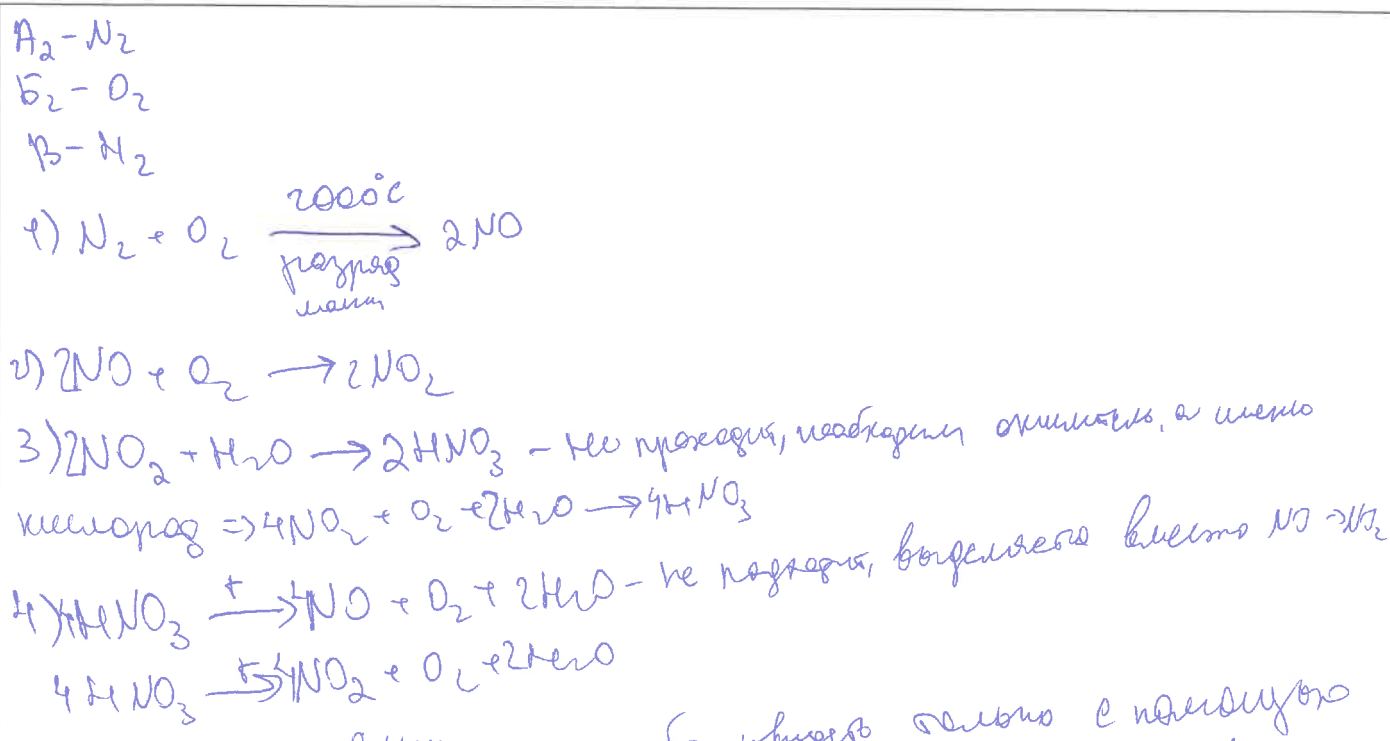 А₂ - N₂
Б₂ - O₂
В - H₂
1) N₂ + O₂ 2000°C → 2NO
разряд
2) 2NO + O₂ → 2NO₂
3) 2NO₂ + H₂O → 2HNO₃ - не проходит, необходим окислитель, а именно
кислород => 4NO₂ + O₂ + 2H₂O → 4HNO₃
4) 4HNO₃ t→ 4NO + O₂ + 2H₂O - не подходит, выделяется вместо NO → NO₂
4HNO₃ t→ 4NO₂ + O₂ + 2H₂O
только с помощью